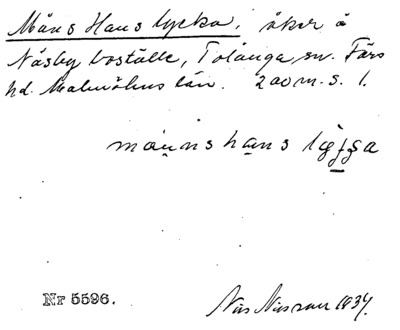 Måns Hans lycka, åker å
Näsby boställe, Tolånga sn. Färs
hd. Malmöhus län. 200 m. s. l.
månns hans
Nr 5596.
Nils Nilsson 1934.